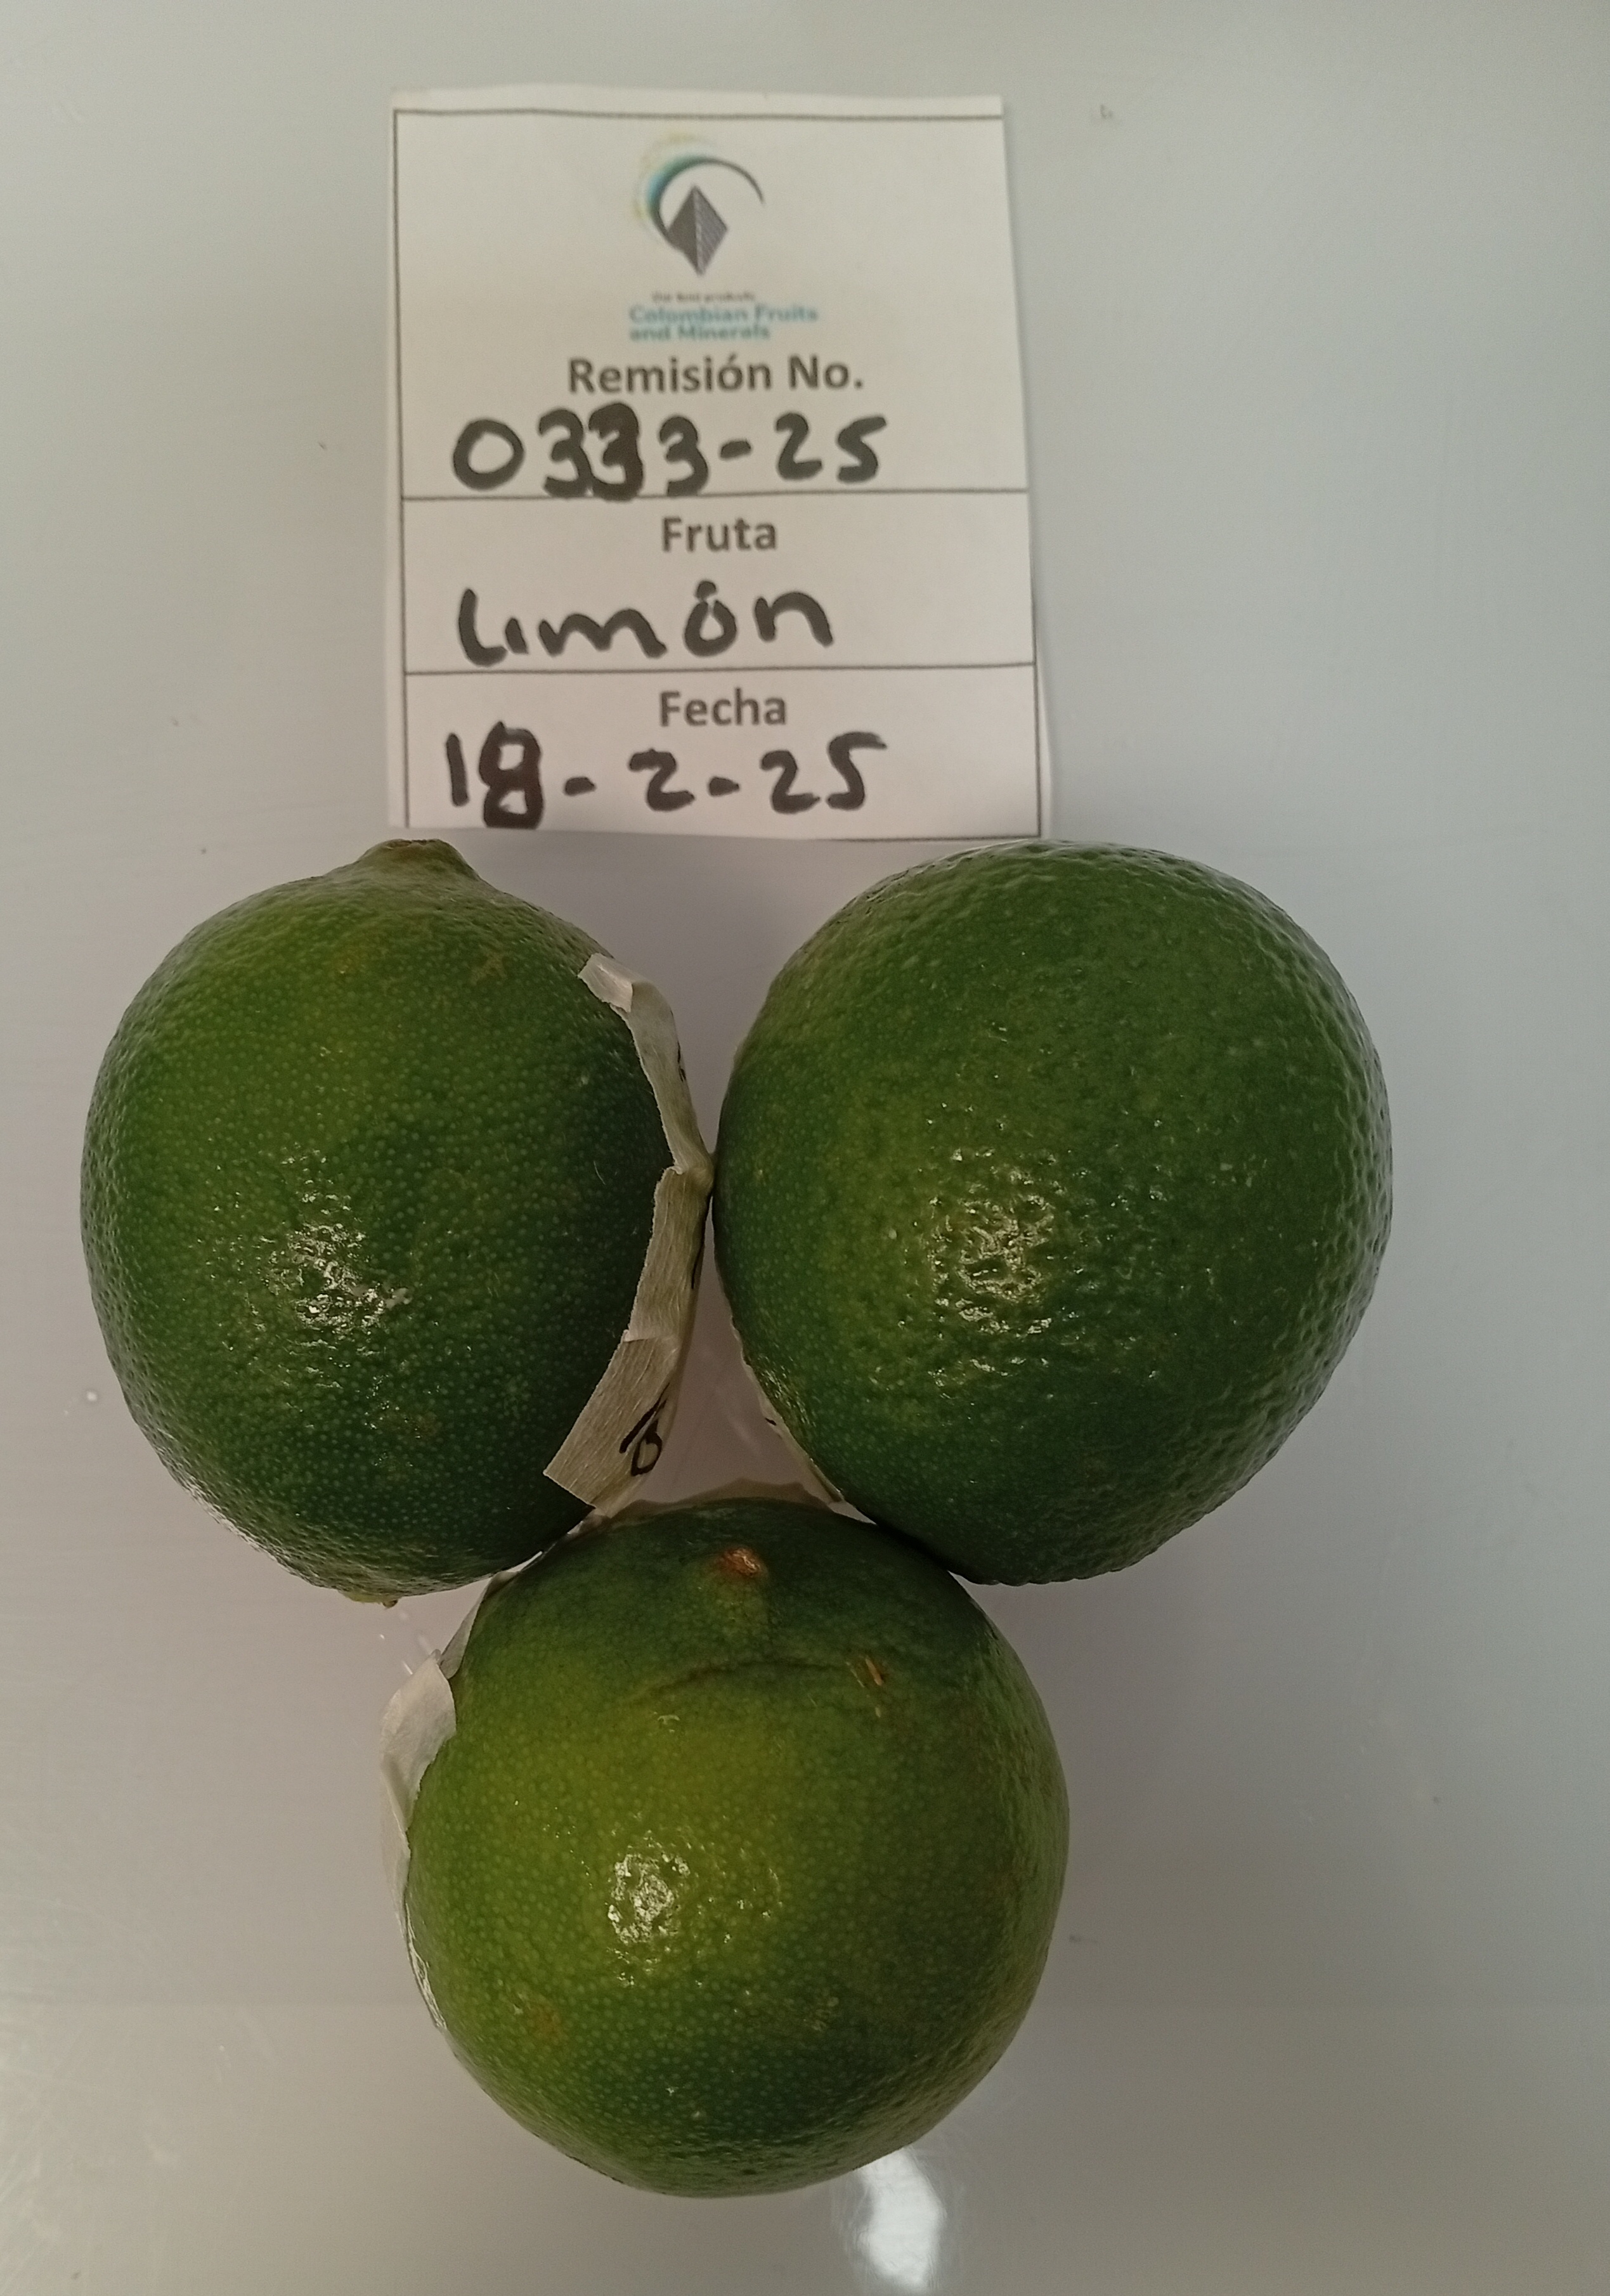 Our best products
Colombian Fruits
and Minerals
Remisión No.
0333-25
Fruta
Limón
Fecha
18-2-25